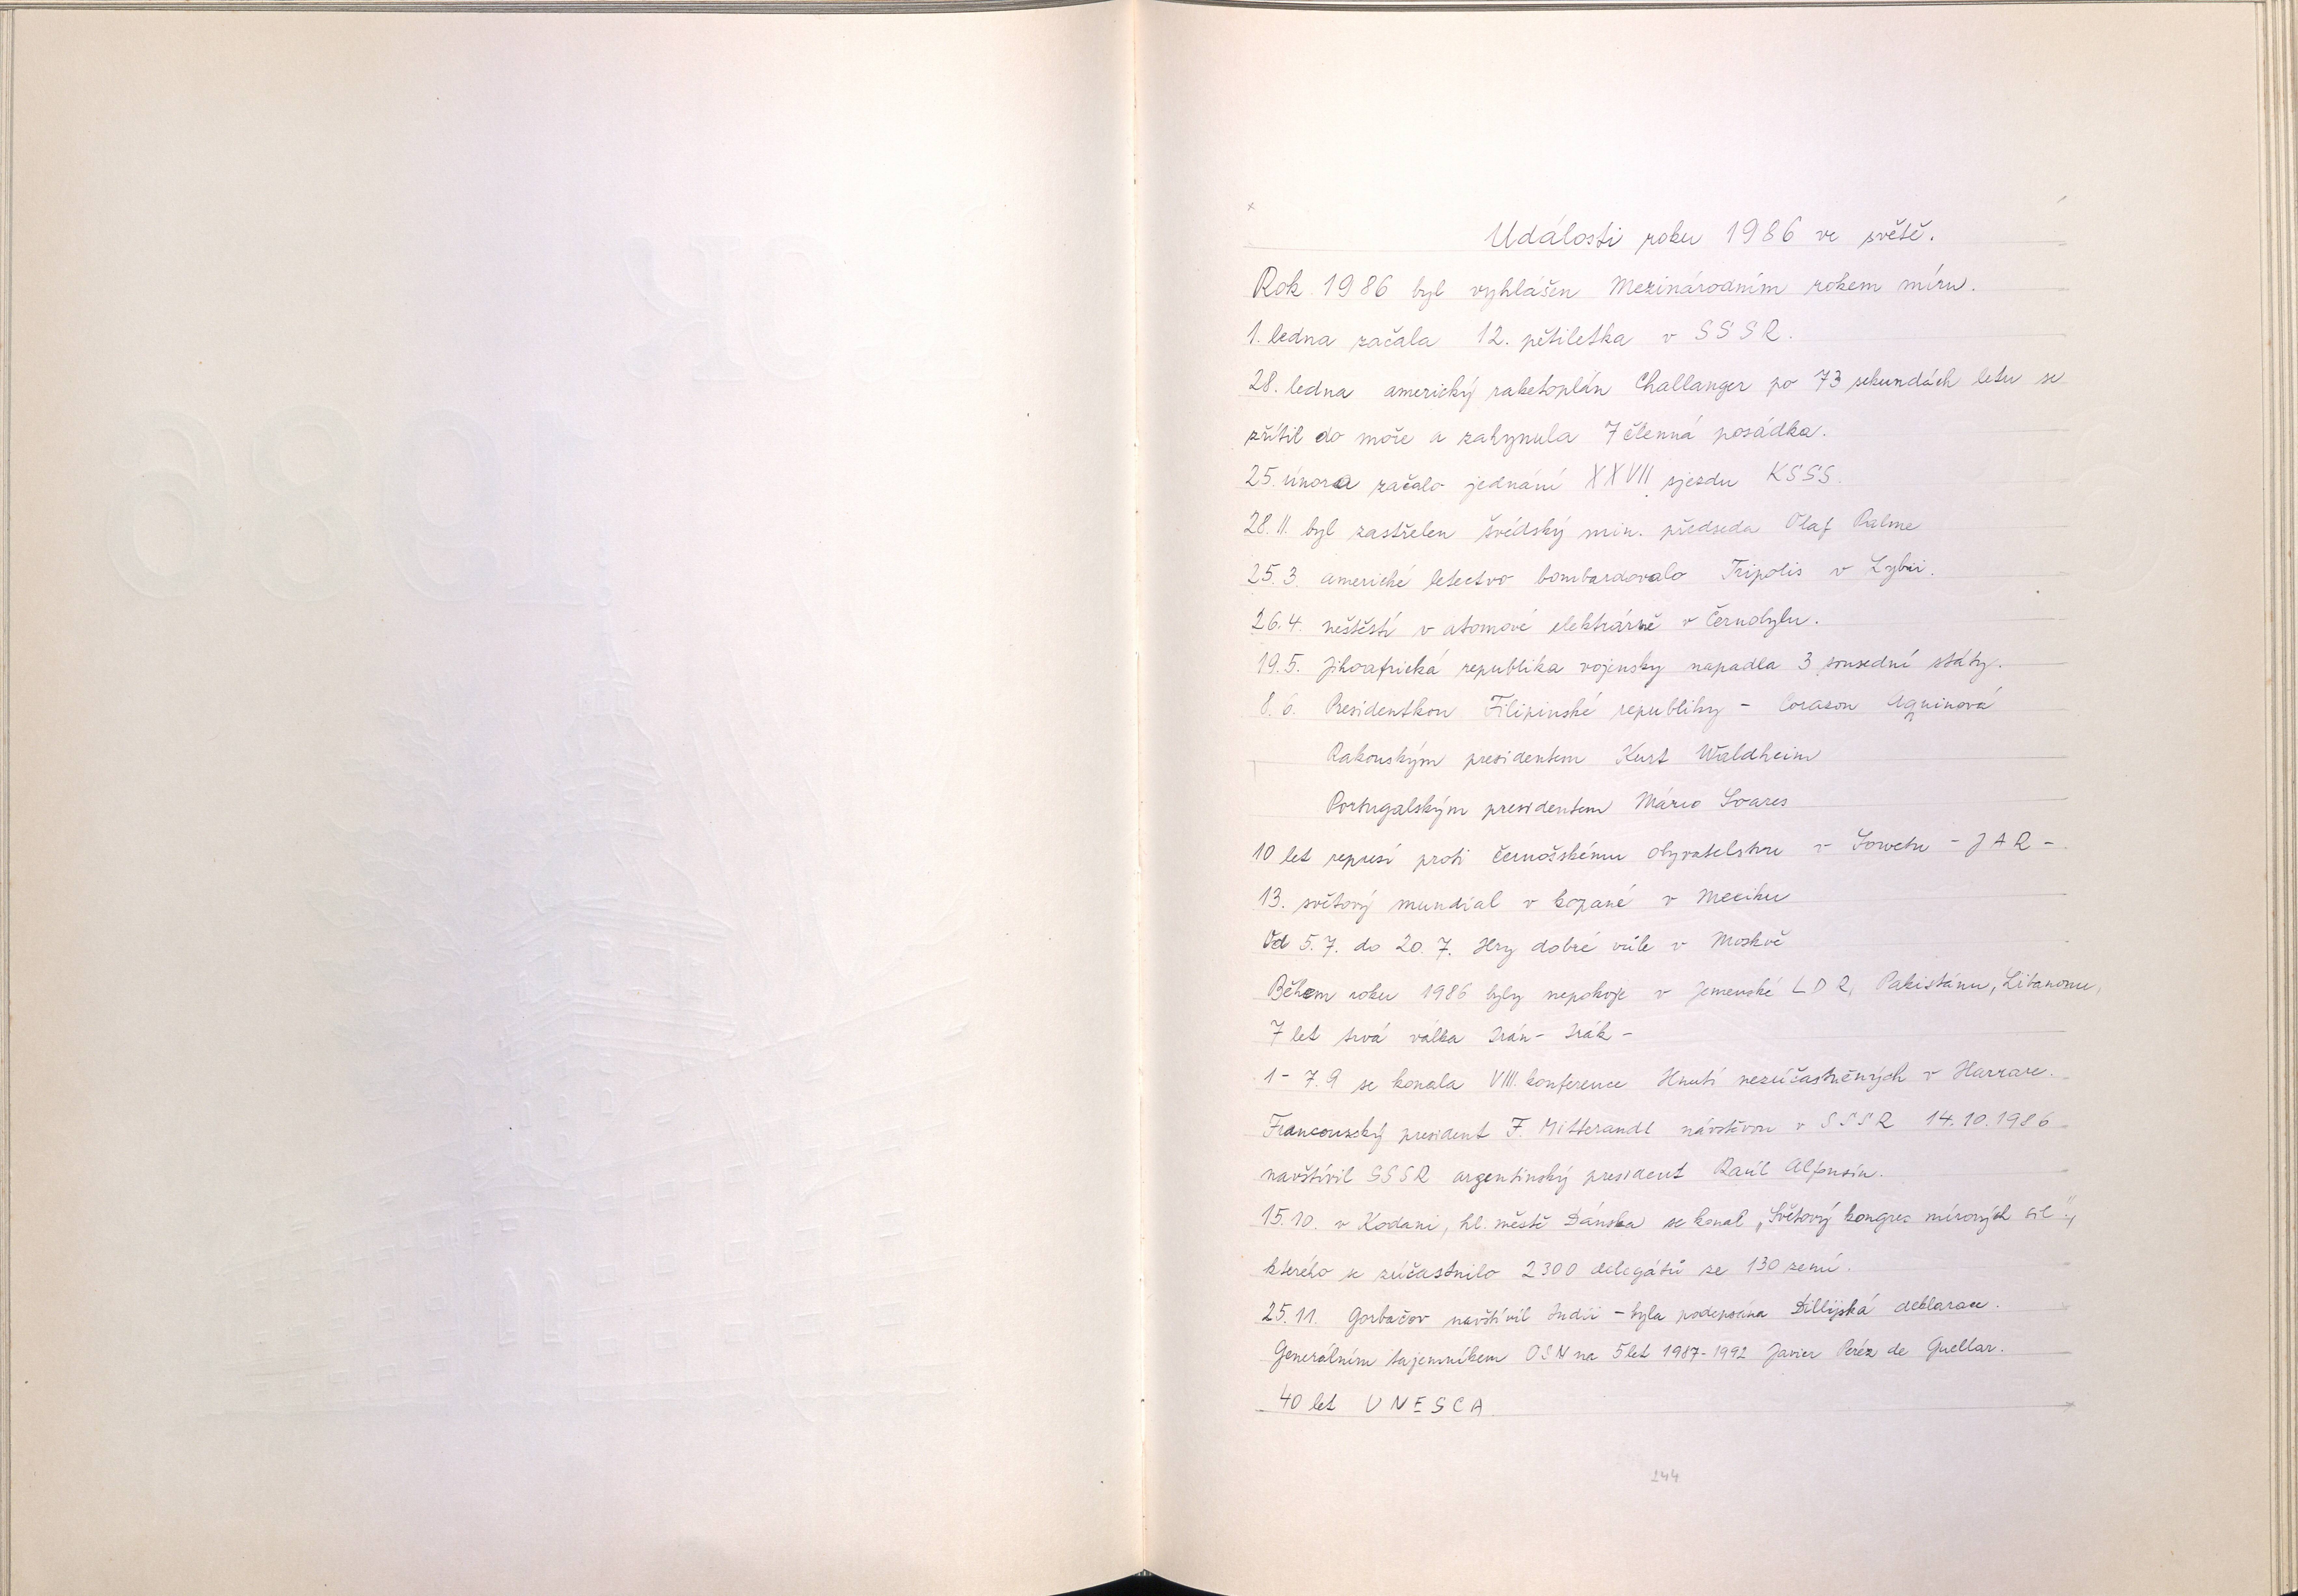 Události roku 1986 ve světě.
Rok 1986 byl vyhlášen Mezinárodním rokem míru.
1. ledna začala 12. pětiletka v SSSR.
28. ledna americký raketoplán Challanger po 73 sekundách letu se
zřítil do moře a zahynula 7 členná posádka.
25. února začalo jednání XXVII sjezdu KSSS.
28. II. byl zastřelen švédský min. předseda Olaf Palme
25. 3. americké letectvo bombardovalo Tripolis v Lybii.
26. 4. neštěstí v atomové elektrárně v Černobylu.
19. 5. Jihoafrická republika vojensky napadla 3 sousední státy.
8. 6. Presidentkou Filipinské republiky - Corazon Aquinová
Rakouským presidentem Kurt Waldheim
Portugalským presidentem Mário Soares
10 let represí proti černošskému obyvatelstvu v Sowetu - JAR -
13. světový mundial v kopané v Mexiku
Od 5. 7. do 20. 7. Hry dobré vůle v Moskvě
Během roku 1986 byly nepokoje v Jemenské LDR, Pakistánu, Libanonu,
7 let trvá válka Irán - Irák -
1 - 7. 9 se konala VIII. konference Hnutí nezúčastněných v Harrare.
Francouzský president F. Mitterandl návštěvou v SSSR 14. 10. 1986
navštívil SSSR argentinský president Raúl Alfonsín.
15. 10. v Kodani, hl. městě Dánska se konal „Světový kongres mírových sil",
kterého se zúčastnilo 2300 delegátů ze 130 zemí.
25. 11. Gorbačov navštívil Indii - byla podepsána Dillijská deklarace.
Generálním tajemníkem OSN na 5 let 1987-1992 Javier Peréz de Guellar.
40 let UNESCA
244
1986